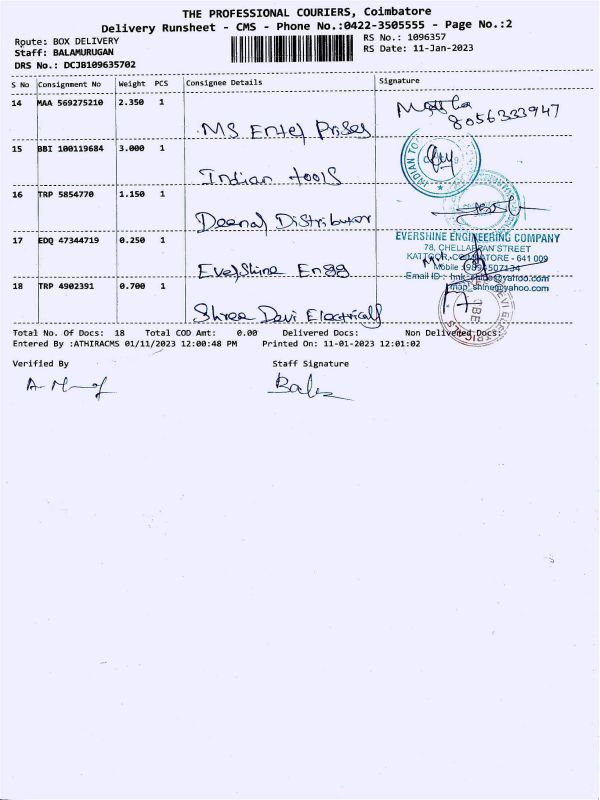 THE PROFESSIONAL COURIERS, Coimbatore
Delivery Runsheet - CMS - Phone No.:0422-3505555 - Page No.:2
Route: BOX DELIVERY
RS No.: 1096357
Staff: BALAMURUGAN
RS Date: 11-Jan-2023
DRS No.: DCJB109635702
S No Consignment No Weight PCS Consignee Details Signature
14 MAA 569275210 2.350 1
8056333947
MS Enter Prises
15 BBI 100119684 3.000 1
INDIAN TO
Indian tools
16 TRP 5854770 1.150 1
Deenaf Distributor
17 EDQ 47344719 0.250 1
EVERSHINE ENGINEERING COMPANY
78, CHELLAPPAN STREET
KATTOOR, COIMBATORE - 641 009
Evershine Engg
18 TRP 4902391 0.700 1
Shree Devi Electricals
DEVI ELECTRICALS
Total No. Of Docs: 18 Total COD Amt: 0.00 Delivered Docs: Non Delivered Docs:
Entered By :ATHIRACMS 01/11/2023 12:00:48 PM Printed On: 11-01-2023 12:01:02
Verified By Staff Signature